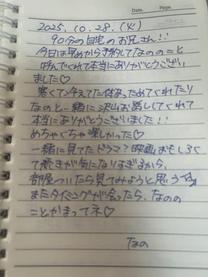 Date
2025.10.28.(火)
90分の自宅のお兄さん!!
今日は早めから予約してなののこと
呼んでくれて本当にありがとうござい
ました♡
寒くて冷えてた体あっためてくれたり
なのと一緒に沢山お話ししてくれて
本当にありがとうございました!!
めちゃくちゃ楽しかった♡
一緒に見てたドラマ?映画おもしろく
て続きが気になりすぎるから、
部屋ついたら見てみようと思う
またタイミングが合ったら、なのの
ことかまってネ♡
なの